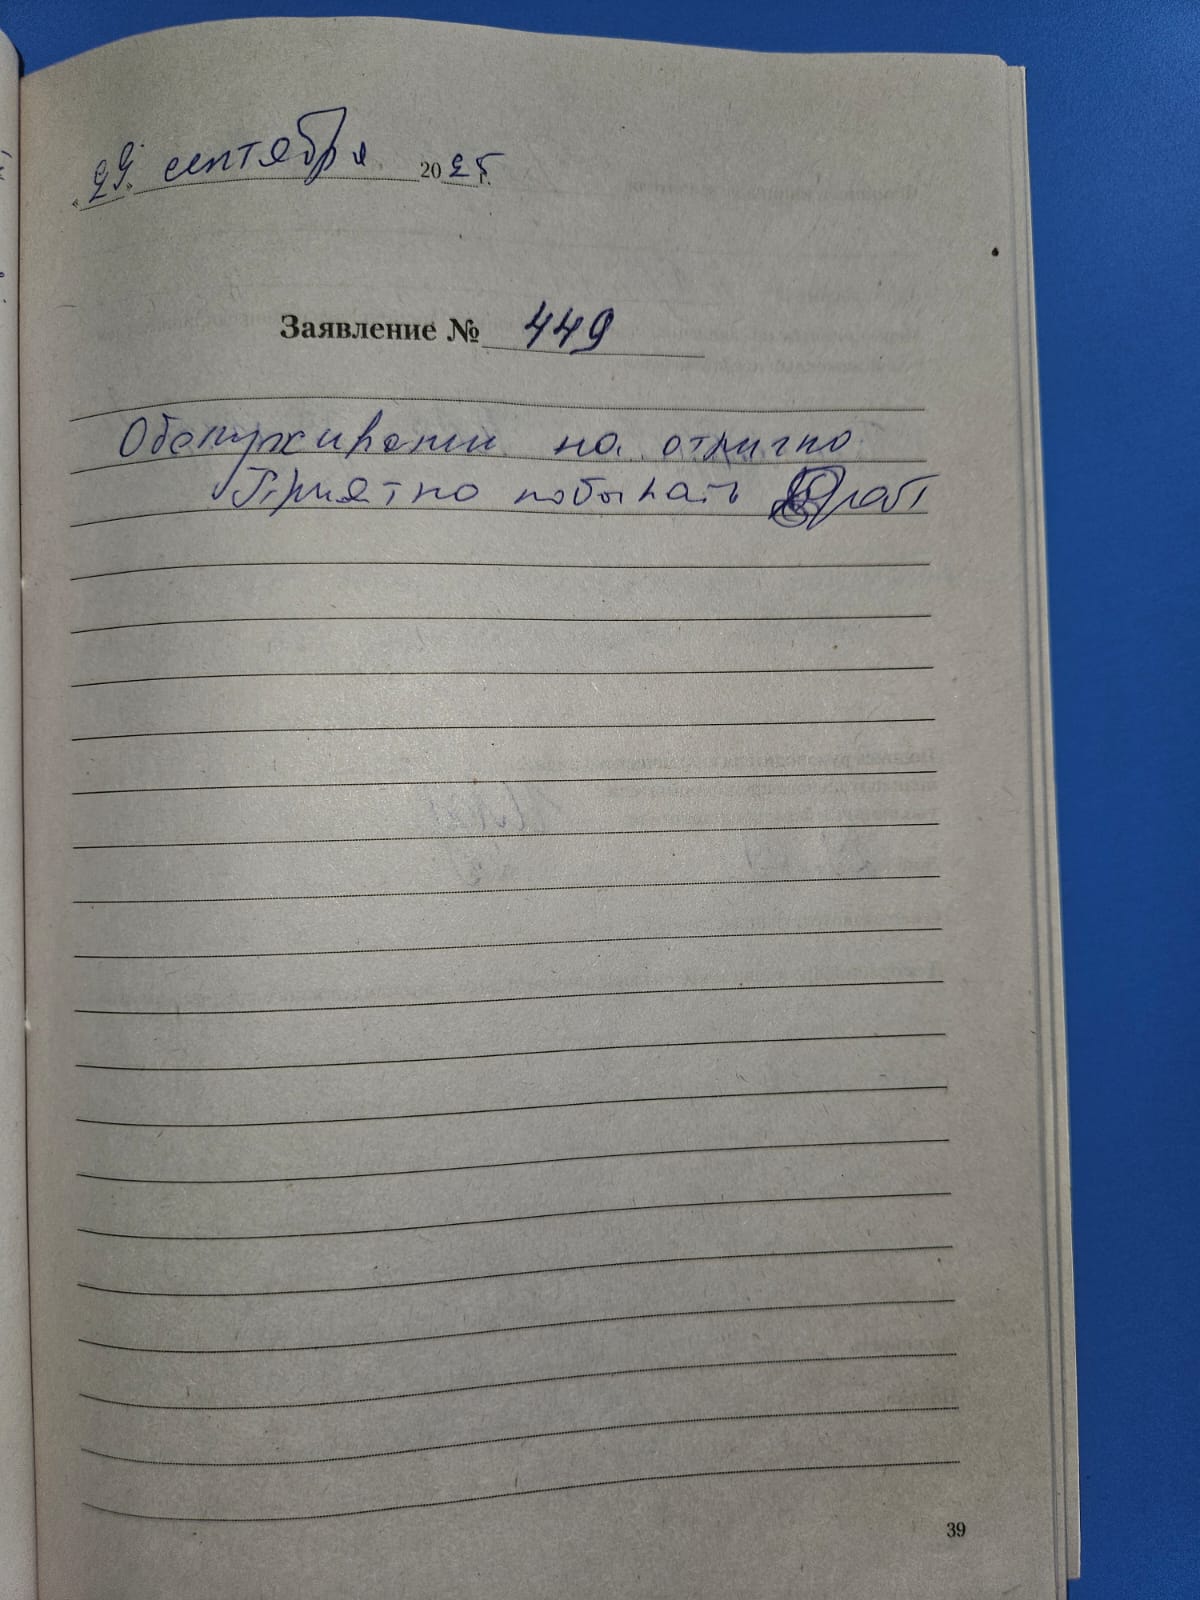 «29» сентября 2025 г.
Заявление № 449
Обслуживании на отлично
Приятно побывать
39